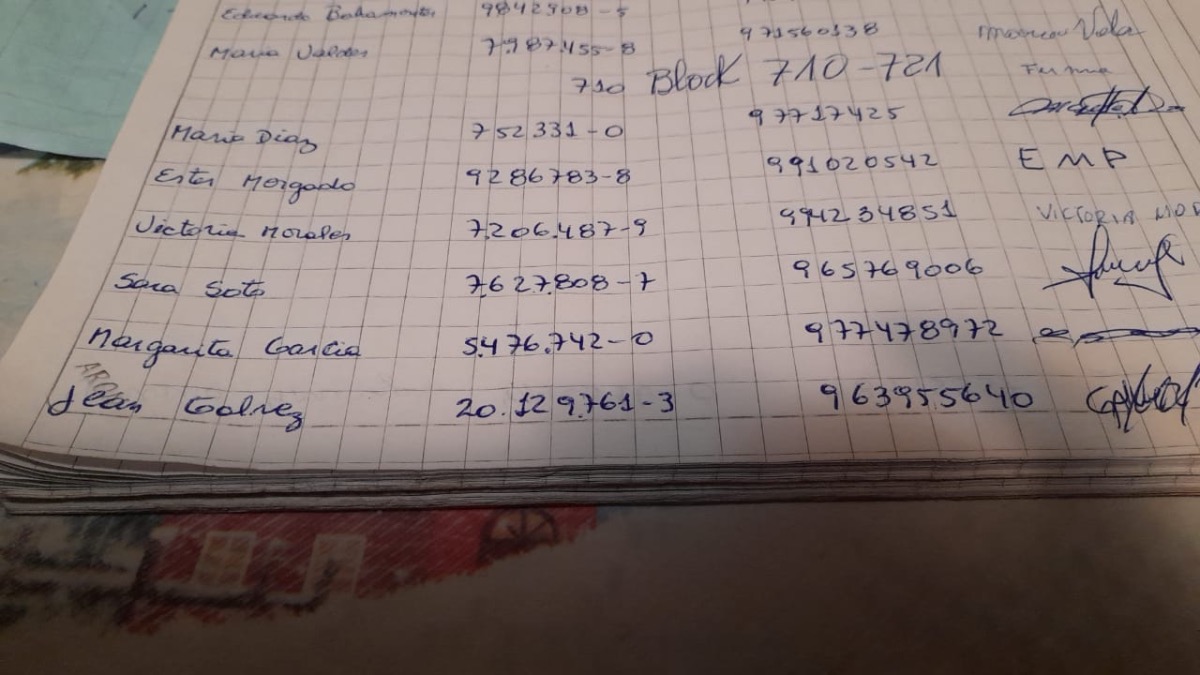 Eduardo Bahamontes 9842908-5
Maria Valdes 7.987.455-8 971560138
710 Block 710-721 Firma
Maria Diaz 752331-0 97717425
Ester Morgado 9286783-8 991020542 EMP
Victoria Morales 7.206.487-9 994234851 VIKTORIA MOR
Sara Soto 7.627.808-7 965769006
Margarita Garcia 5.476.742-0 977478972
Jean Galvez 20.129.761-3 963955640